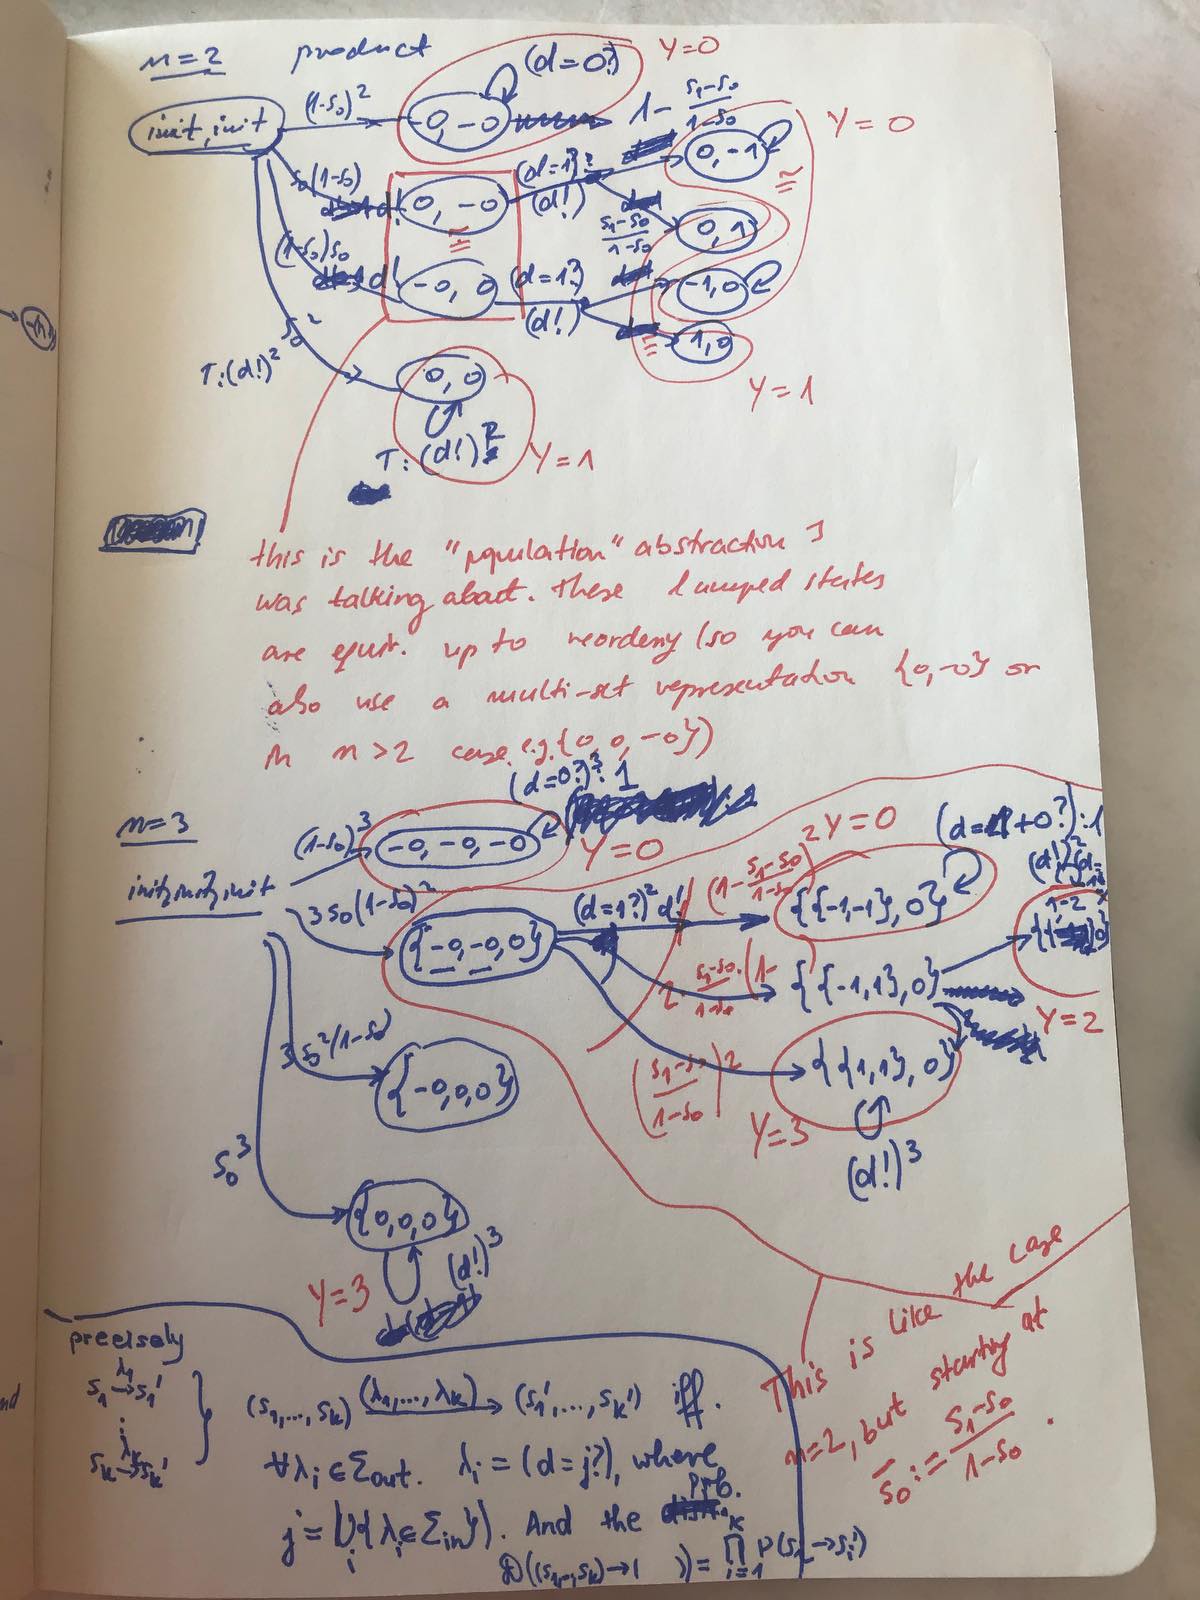 n=2 product
(d=0?) Y=0
init,init (1-s₀)² -0,-0 1- (s₁-s₀)/(1-s₀)
Y=0
s₀(1-s₀) d! 0,-0 (d=1?) (d!) 0,-1 ≅
(s₁-s₀)/(1-s₀) 0,1
≅
(1-s₀)s₀ d! -0,0 (d=1?) (d!) -1,0
≅ 1,0
s₀²
T:(d!)² 0,0 Y=1
T:(d!)² Y=1
this is the "population" abstraction I
was talking about. These lumped states
are equiv. up to reordering (so you can
also use a multi-set representation {0,-0} or
in n>2 case e.g. {0,0,-0})
n=3 (1-s₀)³ (d=0?)³:1
-0,-0,-0 Y=0
init,init,init
3s₀(1-s₀)² {-0,-0,0} (d=1?)²d! (1- (s₁-s₀)/(1-s₀))² Y=0 (d=1+0?):1
{{-1,-1},0}
2 (s₁-s₀)/(1-s₀) · (1- {{-1,1},0}
Y=2
3s₀²(1-s₀) {-0,0,0}
((s₁-s₀)/(1-s₀))² {{1,1},0}
Y=3
(d!)³
s₀³
{0,0,0}
Y=3 (d!)³
This is like the case
n=2, but starting at
s̄₀ := (s₁-s₀)/(1-s₀) .
precisely
s₁ →^λ₁ s₁'
⋮
sₖ →^λₖ sₖ'
(s₁,...,sₖ) →^(λ₁,...,λₖ) (s₁',...,sₖ') iff.
∀λᵢ∈Σout. λᵢ = (d=j?), where
j = |⋃ᵢ{λᵢ∈Σin}|. And the prb.
P((s₁,..,sₖ)→( )) = ∏ᵢ₌₁ᵏ P(sᵢ→sᵢ')